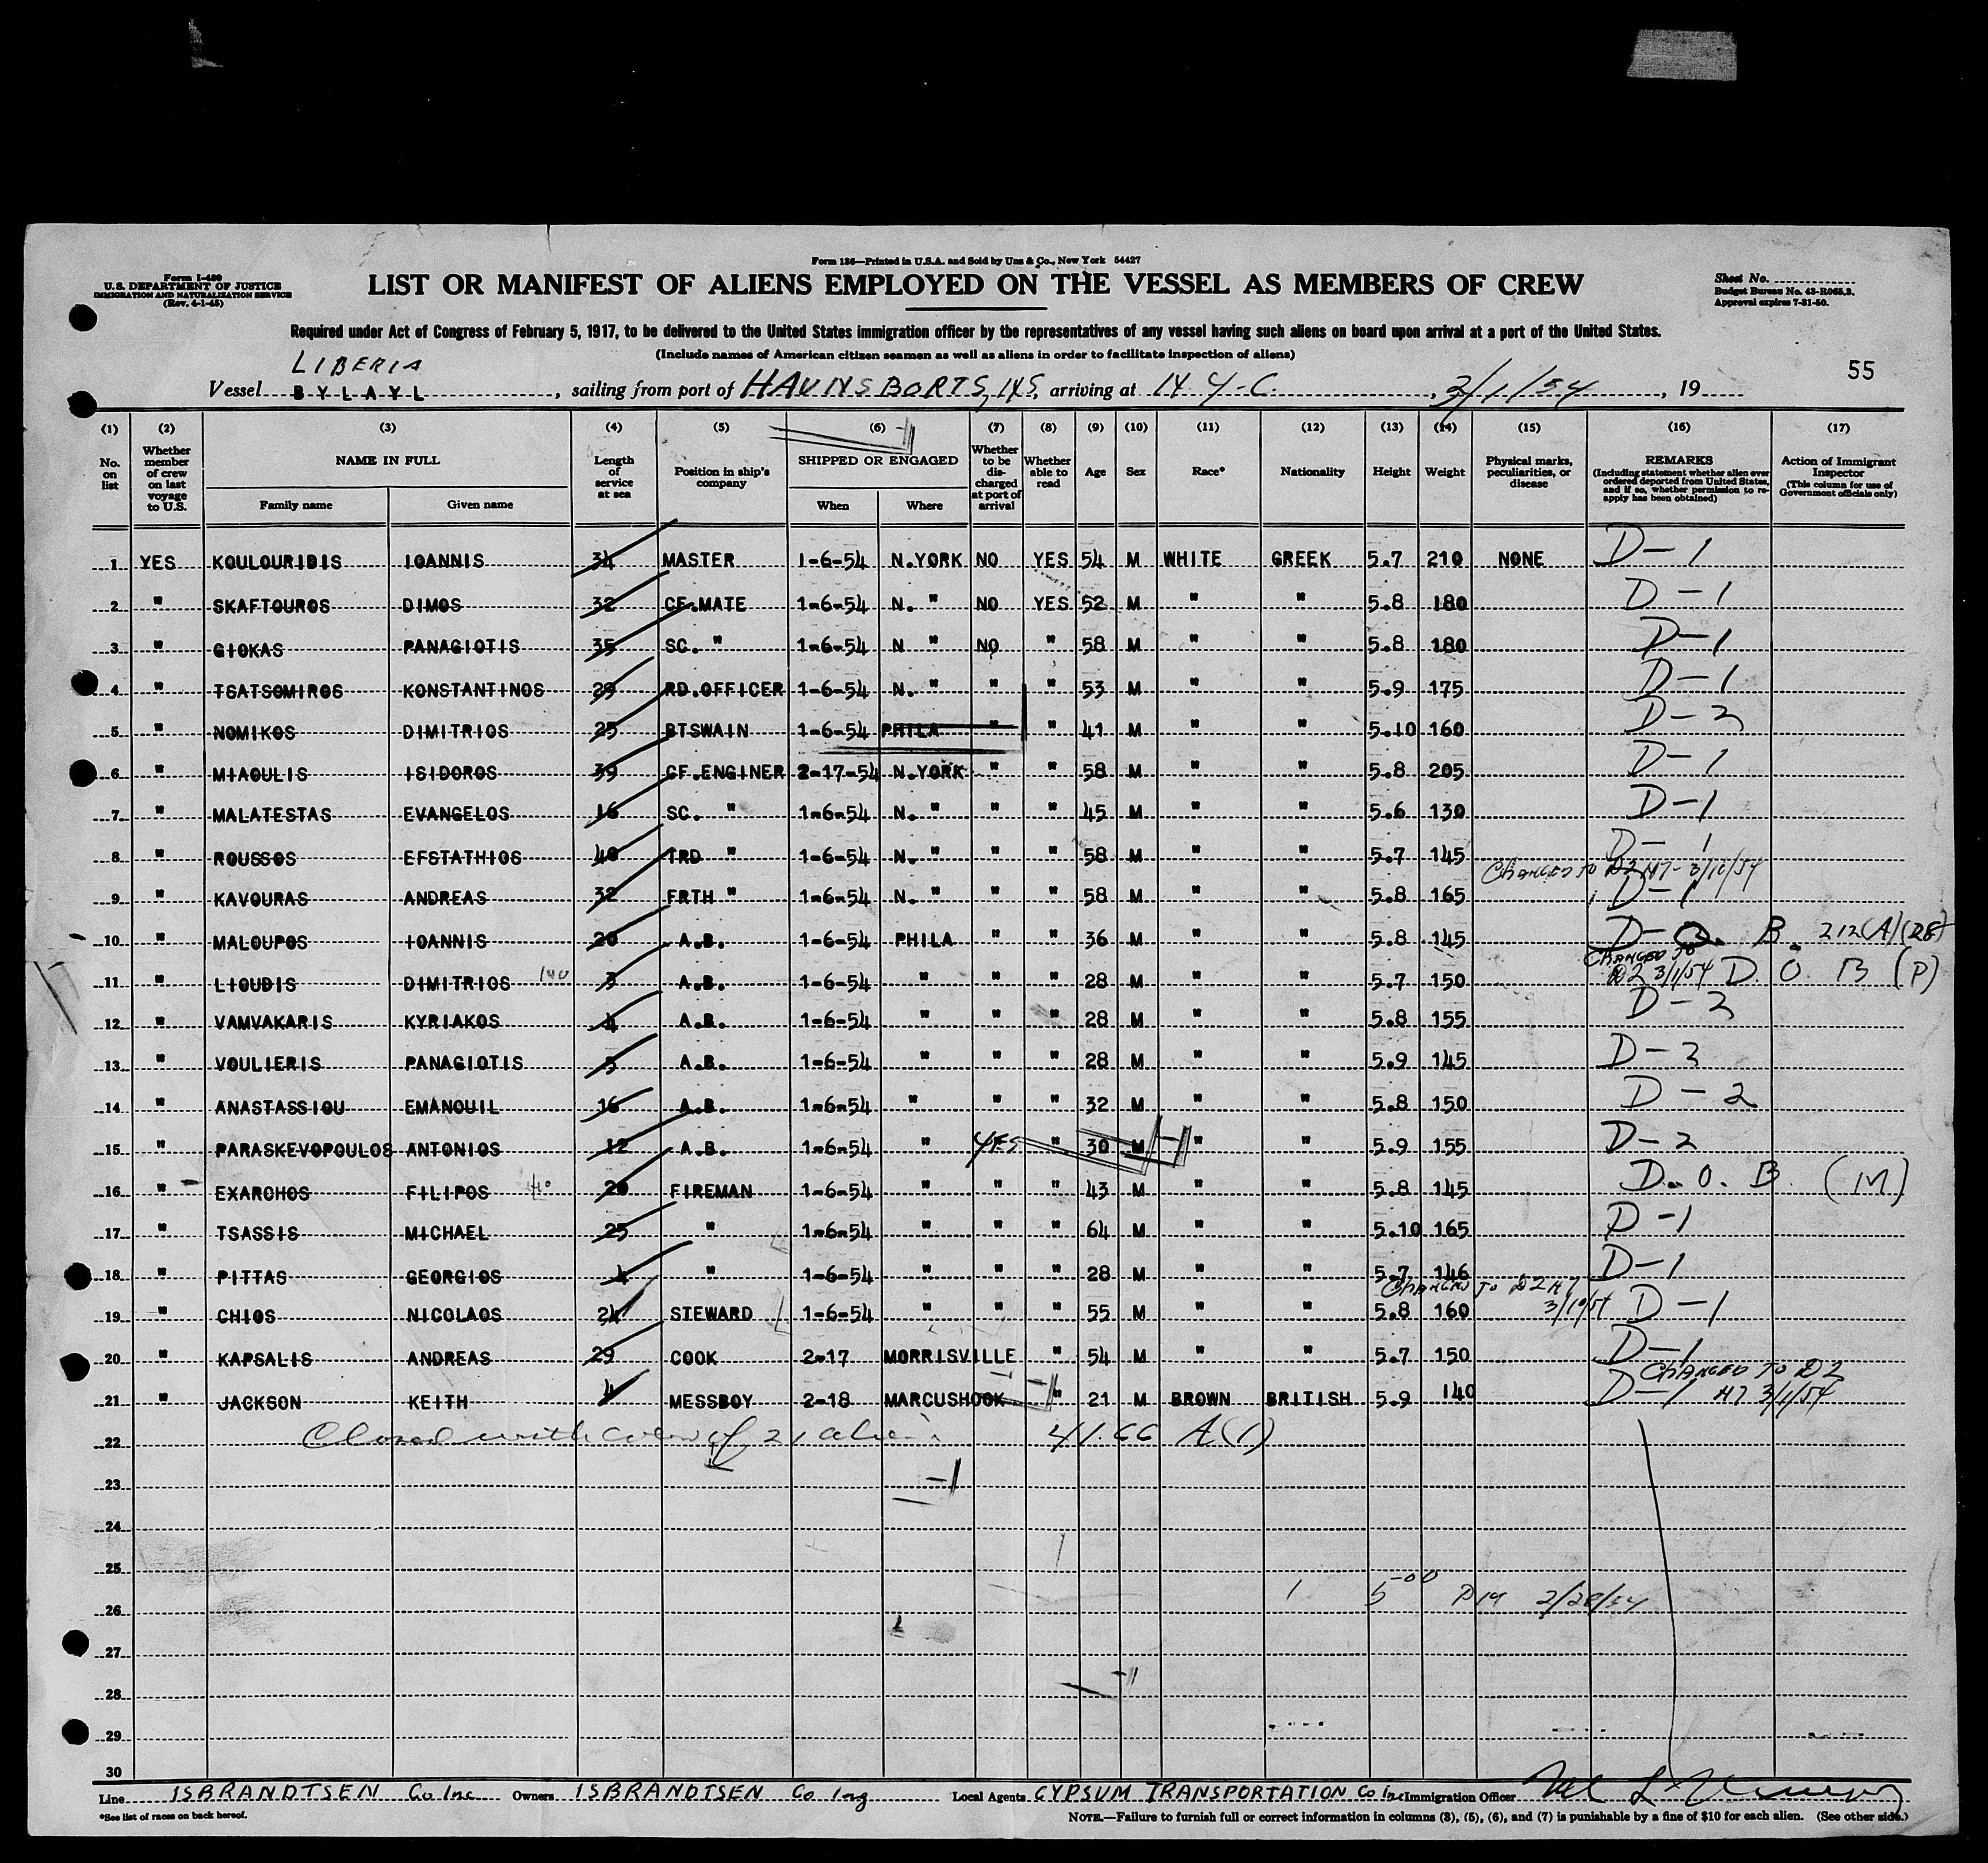 Form I-480
U.S. DEPARTMENT OF JUSTICE
IMMIGRATION AND NATURALIZATION SERVICE
(Rev. 4-1-45)
Form 136—Printed in U.S.A. and Sold by Unz & Co., New York 54427
LIST OR MANIFEST OF ALIENS EMPLOYED ON THE VESSEL AS MEMBERS OF CREW
Sheet No.
Budget Bureau No. 43-R065.3.
Approval expires 7-31-50.
Required under Act of Congress of February 5, 1917, to be delivered to the United States immigration officer by the representatives of any vessel having such aliens on board upon arrival at a port of the United States.
(Include names of American citizen seamen as well as aliens in order to facilitate inspection of aliens)
55
LIBERIA
Vessel BYLAYL, sailing from port of HAUNSBORTS, NS, arriving at N.Y.C., 3/1/54, 19
(1) (2) (3) (4) (5) (6) (7) (8) (9) (10) (11) (12) (13) (14) (15) (16) (17)
No. on list
Whether member of crew on last voyage to U.S.
NAME IN FULL
Family name Given name
Length of service at sea
Position in ship's company
SHIPPED OR ENGAGED
When Where
Whether to be discharged at port of arrival
Whether able to read
Age
Sex
Race*
Nationality
Height
Weight
Physical marks, peculiarities, or disease
REMARKS
(Including statement whether alien ever ordered deported from United States, and if so, whether permission to re-apply has been obtained)
Action of Immigrant Inspector
(This column for use of Government officials only)
1 YES KOULOURIDIS IOANNIS 34 MASTER 1-6-54 N.YORK NO YES 54 M WHITE GREEK 5.7 210 NONE D-1
2 " SKAFTOUROS DIMOS 32 CF.MATE 1-6-54 N. " NO YES 52 M " " 5.8 180 D-1
3 " GIOKAS PANAGIOTIS 35 SC. " 1-6-54 N " NO " 58 M " " 5.8 180 D-1
4 " TSATSOMIROS KONSTANTINOS 29 RD.OFFICER 1-6-54 N. " " " 53 M " " 5.9 175 D-1
5 " NOMIKOS DIMITRIOS 25 BTSWAIN 1-6-54 PHILA " " 41 M " " 5.10 160 D-2
6 " MIAOULIS ISIDOROS 39 CF.ENGINER 2-17-54 N.YORK " " 58 M " " 5.8 205 D-1
7 " MALATESTAS EVANGELOS 16 SC. " 1-6-54 N. " " " 45 M " " 5.6 130 D-1
8 " ROUSSOS EFSTATHIOS 40 TRD " 1-6-54 N. " " " 58 M " " 5.7 145 D-1
CHANGED TO D2 N7- 3/10/54
9 " KAVOURAS ANDREAS 32 FRTH " 1-6-54 N. " " " 58 M " " 5.8 165 D-1
10 " MALOUPOS IOANNIS 20 A.B. 1-6-54 PHILA " " 36 M " " 5.8 145 D-O. B. 212(A)(28)
CHANGED TO
11 " LIOUDIS DIMITRIOS 3 A.B. 1-6-54 " " " 28 M " " 5.7 150 D2 3/1/54 D. O. B (P)
12 " VAMVAKARIS KYRIAKOS 4 A.B. 1-6-54 " " " 28 M " " 5.8 155 D-2
13 " VOULIERIS PANAGIOTIS 5 A.B. 1-6-54 " " " 28 M " " 5.9 145 D-2
14 " ANASTASSIOU EMANOUIL 16 A.B. 1-6-54 " " " 32 M " " 5.8 150 D-2
15 " PARASKEVOPOULOS ANTONIOS 12 A.B. 1-6-54 " YES " 30 M " " 5.9 155 D-2
16 " EXARCHOS FILIPOS 20 FIREMAN 1-6-54 " " " 43 M " " 5.8 145 D.O.B. (M)
17 " TSASSIS MICHAEL 25 " 1-6-54 " " " 64 M " " 5.10 165 D-1
18 " PITTAS GEORGIOS 4 " 1-6-54 " " " 28 M " " 5.7 146 D-1
CHANGED TO D2 N7
3/10/54
19 " CHIOS NICOLAOS 24 STEWARD 1-6-54 " " " 55 M " " 5.8 160 D-1
20 " KAPSALIS ANDREAS 29 COOK 2-17 MORRISVILLE " 54 M " " 5.7 150 D-1
CHANGED TO D2
21 " JACKSON KEITH 4 MESSBOY 2-18 MARCUSHOOK " 21 M BROWN BRITISH 5.9 140 D-1 N7 3/1/54
22 Closed with crew of 21 aliens 41.66 A(1)
23
24
25
1 5-00 2/28/54
26
27
28
29
30
Line ISBRANDTSEN Co Inc Owners ISBRANDTSEN Co Ing Local Agents GYPSUM TRANSPORTATION Co Inc Immigration Officer
*See list of races on back hereof.
NOTE.—Failure to furnish full or correct information in columns (3), (5), (6), and (7) is punishable by a fine of $10 for each alien. (See other side.)